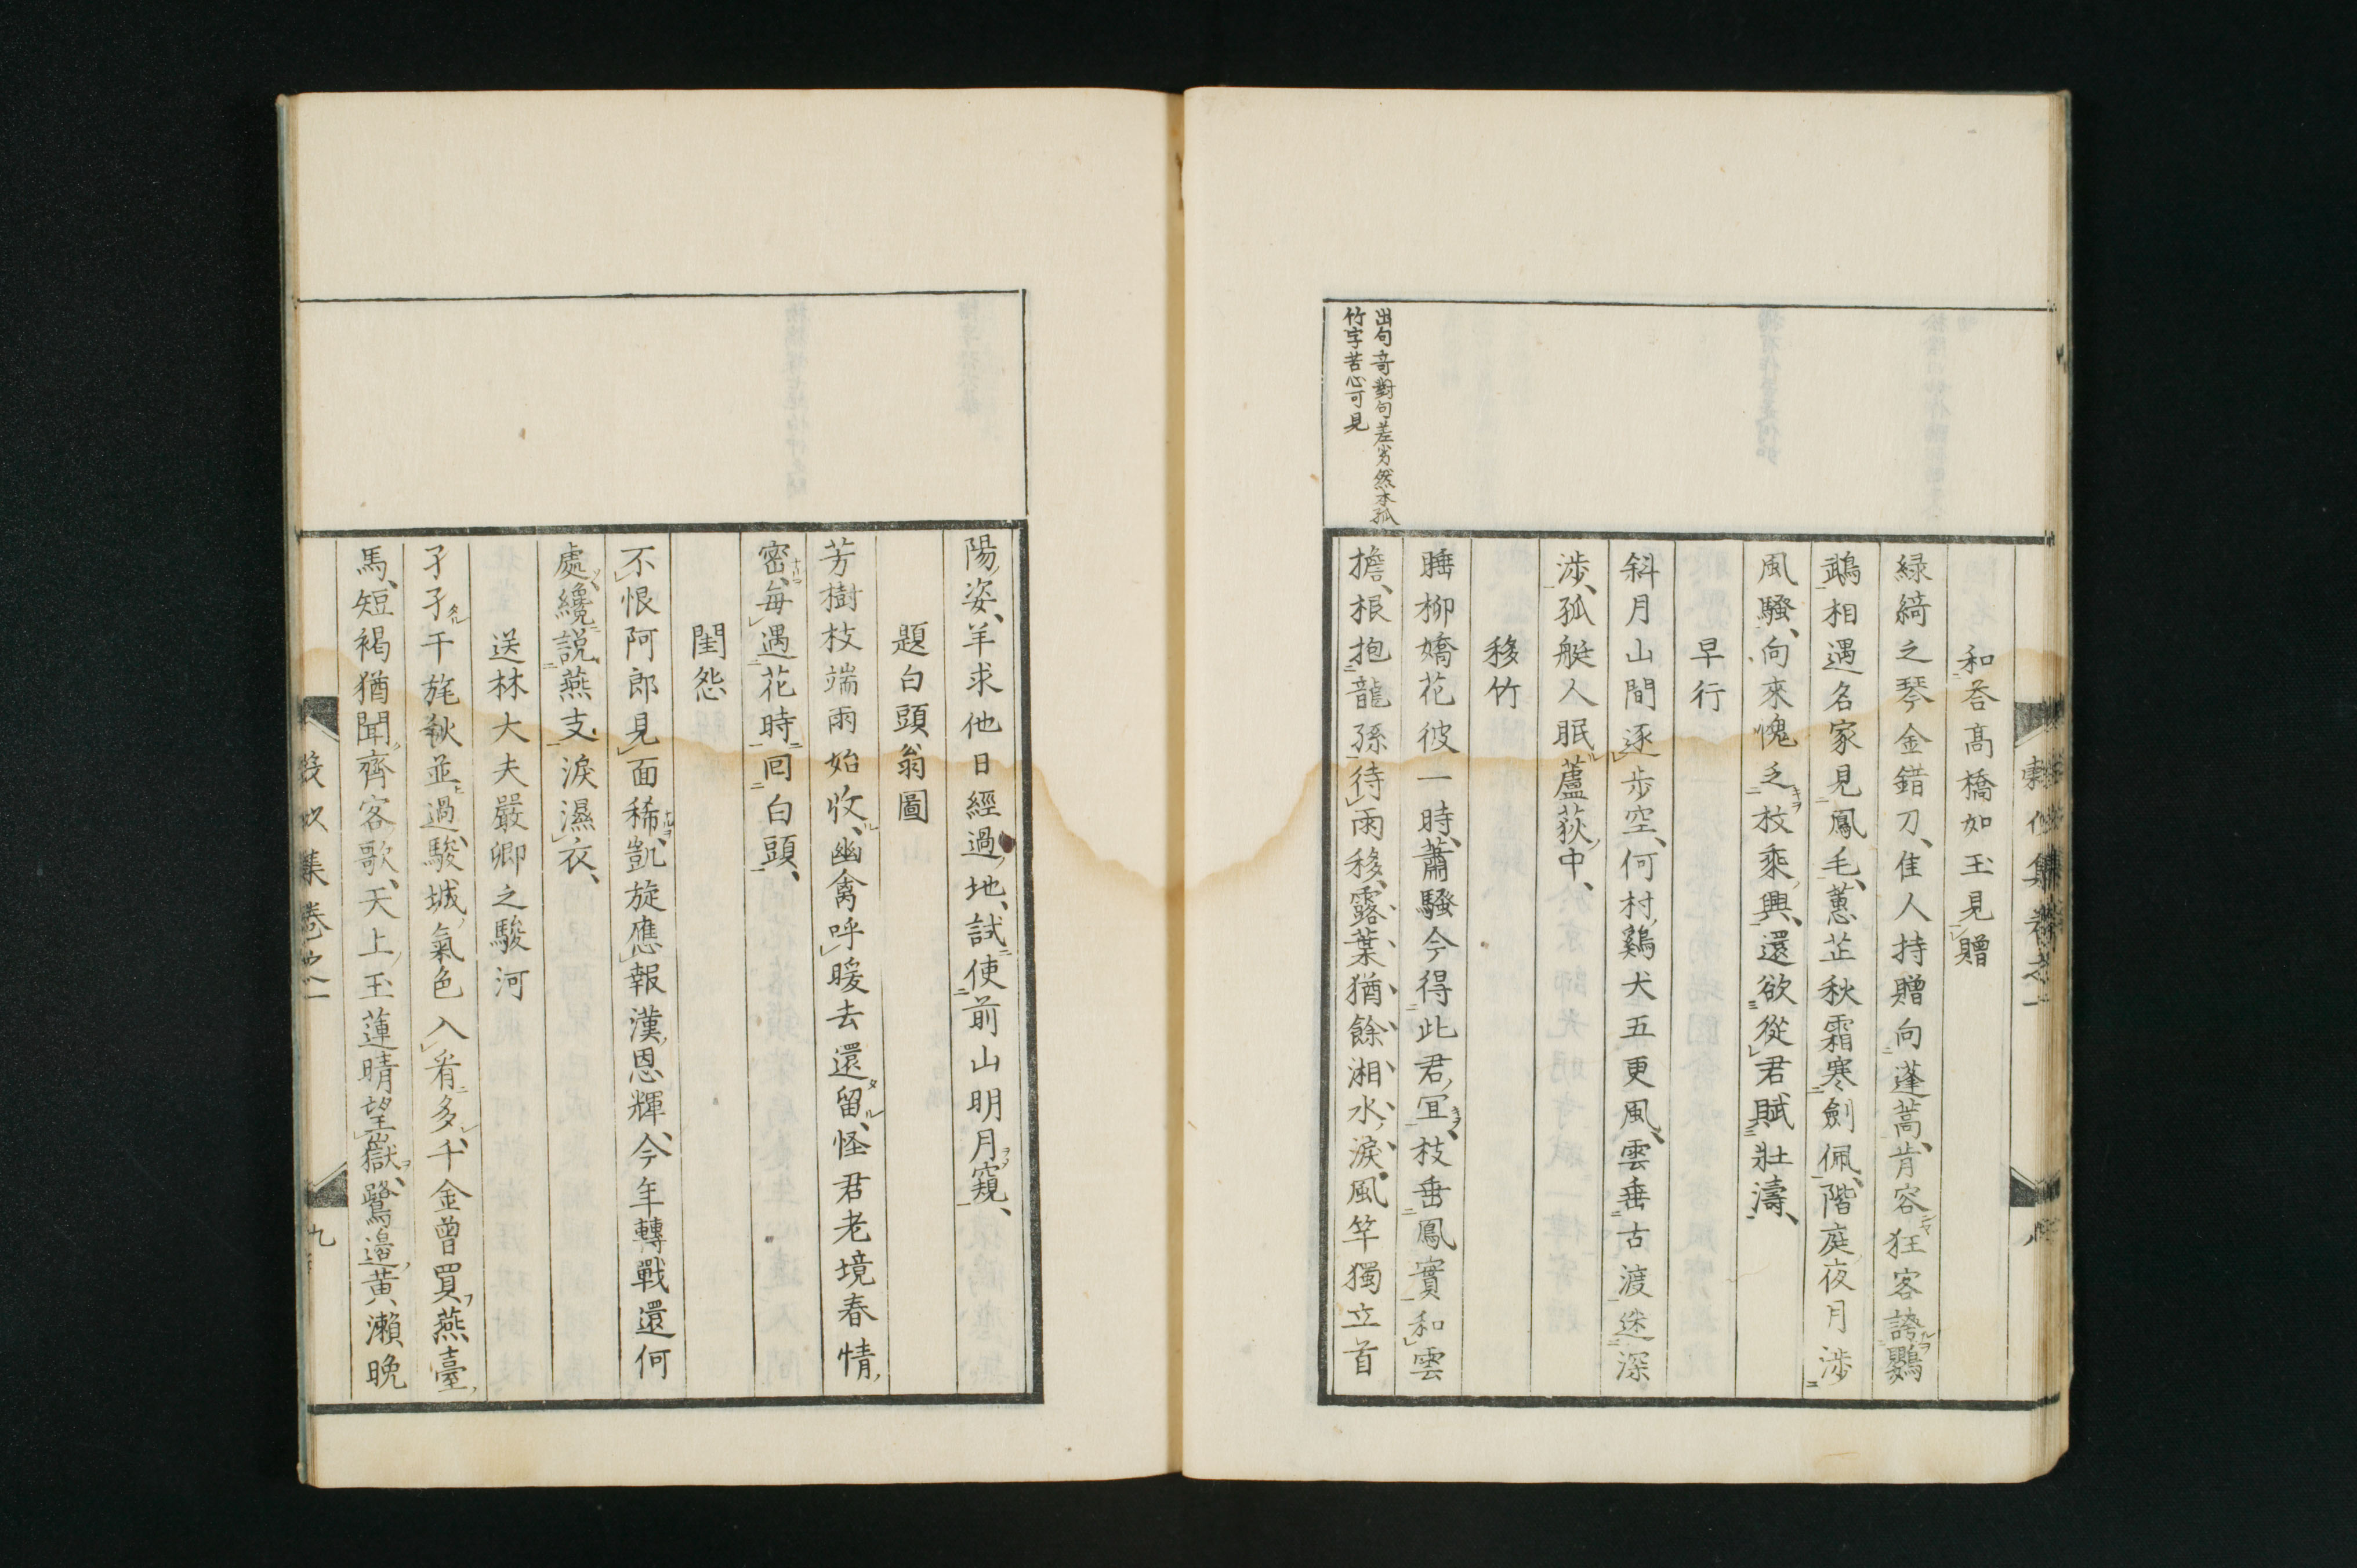 和荅髙橋如玉見贈
緑綺之琴金錯刀、佳人持贈向蓬蒿、肯容狂客誇鸚
鵡相遇名家見鳳毛、蕙芷秋霜寒劍佩、階庭夜月渉
風騷、向來愧乏枚乘興、還欲從君賦壯濤、
早行
斜月山間逐歩空、何村鷄犬五更風、雲垂古渡迷深
渉、孤艇人眠蘆荻中、
移竹
睡柳嬌花彼一時、蕭騷今得此君冝、枝垂鳳實和雲
擔、根抱龍孫待雨移、露葉猶餘湘水淚、風竿獨立首
出句竒對句差劣然本孤
竹字苦心可見
陽姿、羊求他日經過地、試使前山明月窺、
題白頭翁圖
芳樹枝端雨始收、幽禽呼暖去還留、怪君老境春情
密、每遇花時囘白頭、
閨怨
不恨阿郎見面稀、凱旋應報漢恩輝、今年轉戰還何
處、纔説燕支淚濕衣、
送林大夫嚴卿之駿河
孑孑干旄秋並過、駿城氣色入看多、千金曾買燕臺
馬、短褐猶聞齊客歌、天上玉蓮晴望嶽、鷺邉黄瀬晚
集卷之一
九